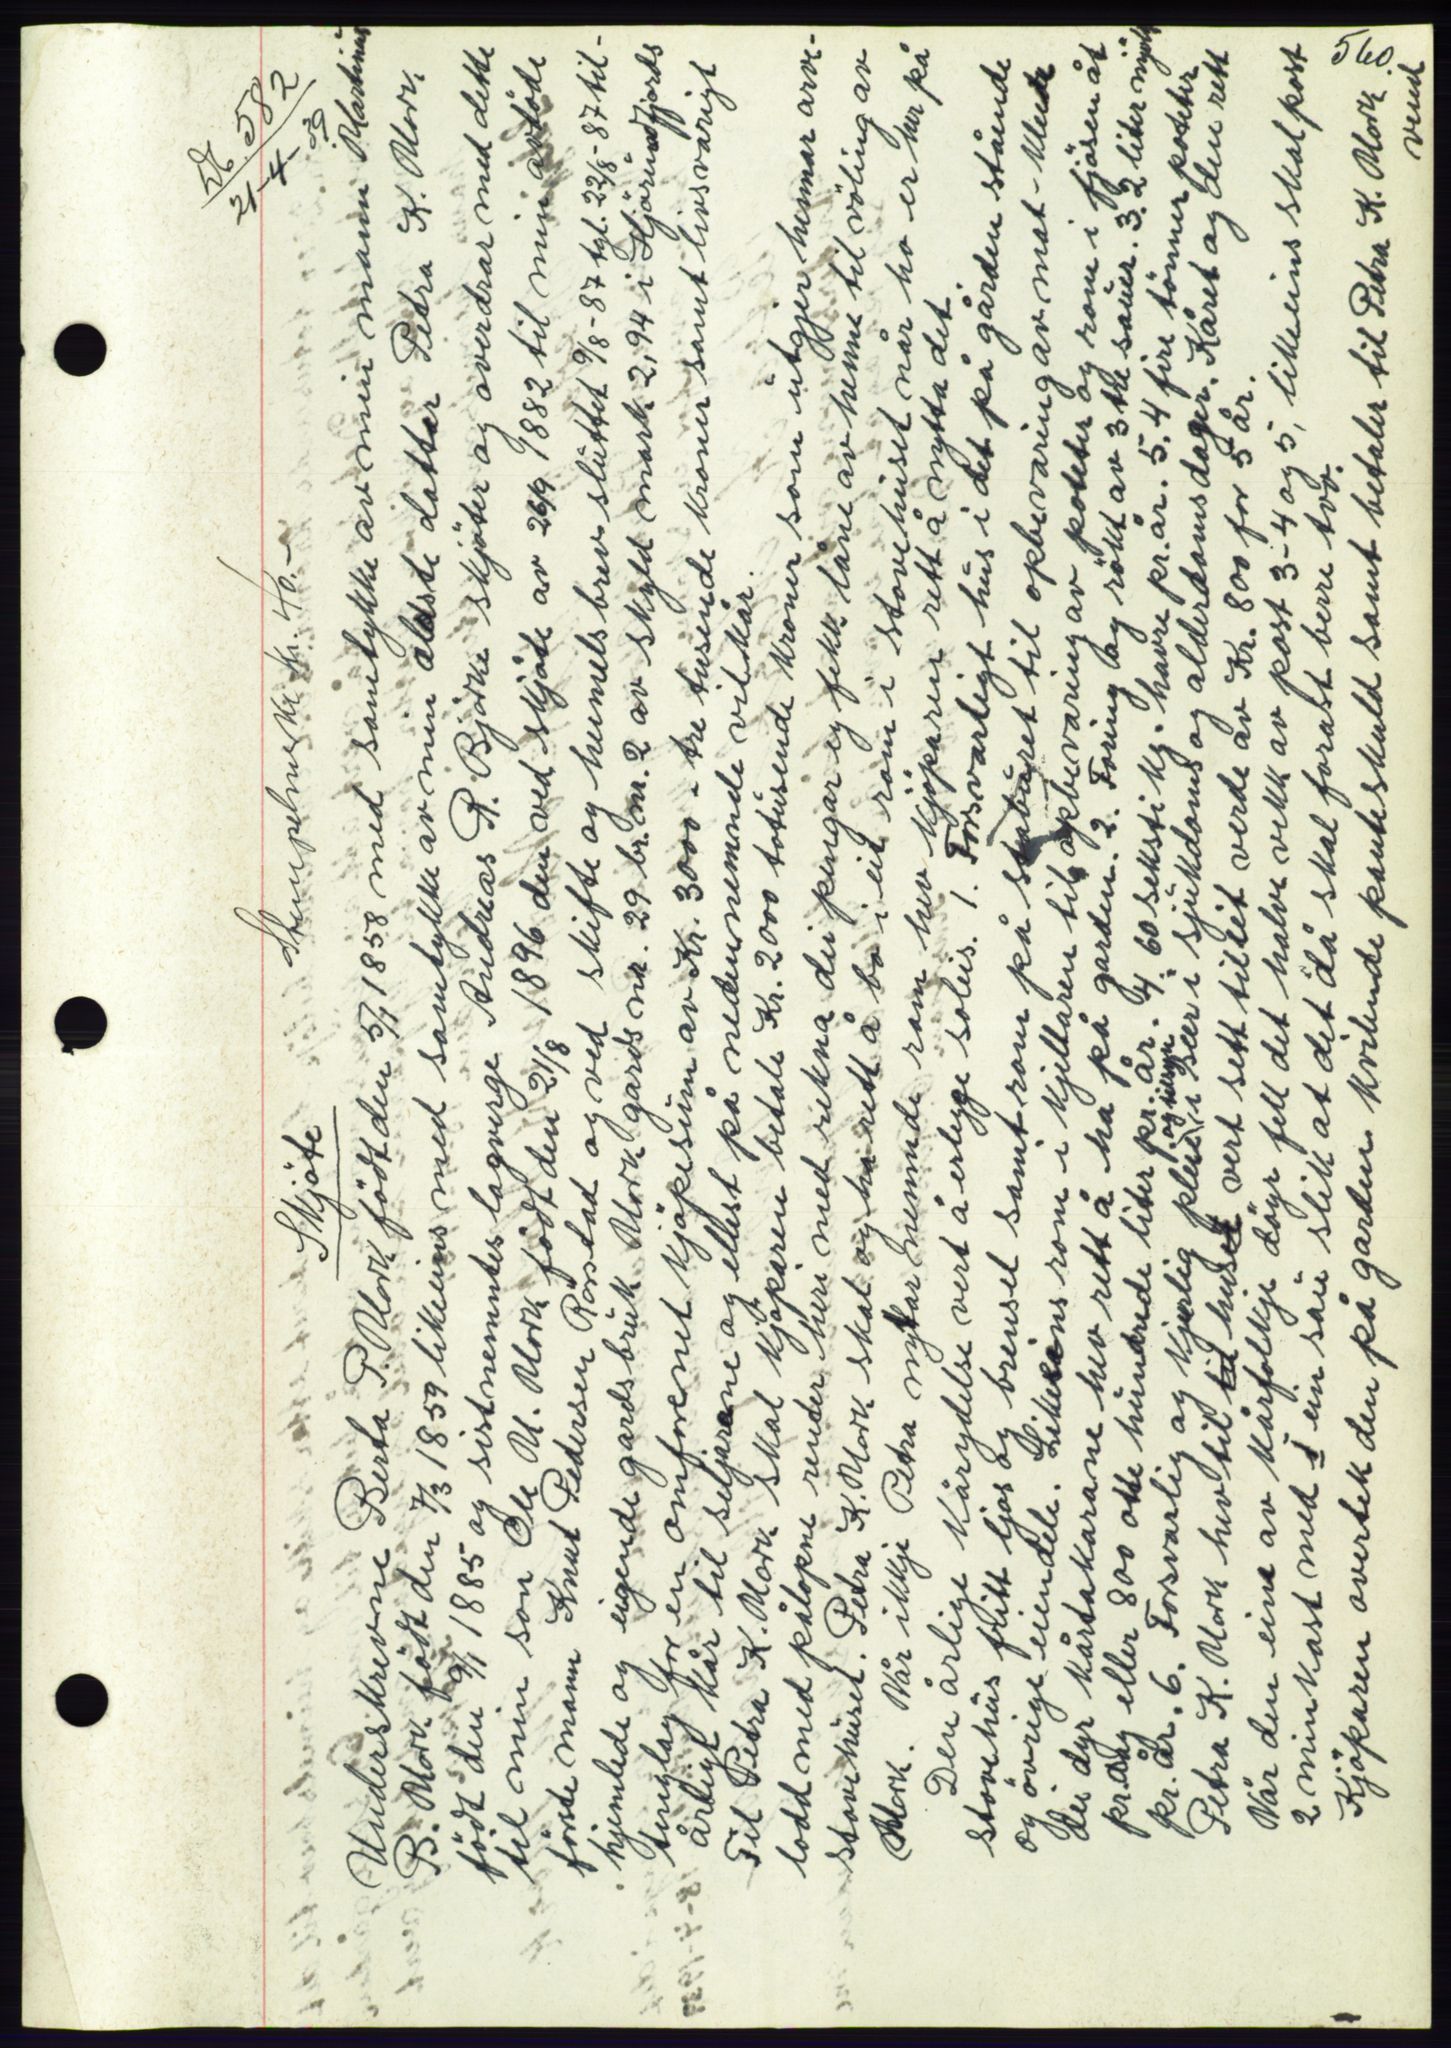 № 582
21-4-39
Stempelmerke Kr. 40.-
Skjöte
Underskrevne Berta P. Mork födt den 5/1 1858 med samtykke av min mann Martinus
B. Mork födt den 7/3 1859 likeins med samtykke av min aldste datter Petra K. Mork
födt den 9/1 1885 og sistnemntes lagverge Andreas R. Bjørke skjöter og overdrar med dette
til min son Ole M. Mork födt den 21/8 1896 den ved skjöte av 26/9 1882 til min avdöde
förste mann Knut Pedersen Romstad og ved skifte og heimelsbrev sluttet 9/8-87 tgl. 22/8-87 til-
hjemlede og eigende gardsbruk Mork gards nr. 29 br. nr. 2 av skyld mark 2,94 i Hjörundfjords
tinglag for en omforenet kjöpesum av Kr. 3000 - tre tusende kroner samt livsvarigt
årligt kår til seljarene og ellest på nedennemnde vilkår.
Til Petra K. Mork skal kjöparen betale Kr. 2000 totusende kroner som utgjer hennar arve-
lodd med pålopne renter heri med rekna dei pengar eg fekk låne av henne til völing av
stovehuset. Petra K. Mork skal og ha rett å bo i eit rom i stovehuset når ho er her på
Mork. Når ikkje Petra nyttar nemnde rom hev kjöparen rett å nytta det.
Den årlige kårydelse vert å erlegge soleis. 1. Forsvarligt hus i det på gården stående
stovehus fritt ljos og brensel samt rom på stabüret til opbevaring av mat- klede
og övrige eiendele. Likeeins rom i kjellaren til opbevaring av poteter og rom i fjösen åt
dei dyr kårtakarane hev rett å ha på garden. 2. Foring og rökt av 3 tre sauer. 3. 2 liter mjölk
pr. dag eller 800 otte hundrede liter pr. år. 4. 60 seksti kg. havre pr. år. 5. 4 fire tönner poteter
pr. år. 6. Forsvarlig og kjærlig pleie og tilsyn i Beer i sjukdoms og alderdomsdager. Kåret og den rett
Petra K. Mork hev til huset vert sett til eit verde av Kr. 800 for 5 år.
Når den eine av kårfolkje döyr fell det halve vekk av post 3-4 og 5, likeeins skal post
2 minkast med ein sau slik at det då skal forast berre två.
Kjöparen overtek den på garden kvilende panteskuld samt betaler til Petra K. Mork
560.
vend